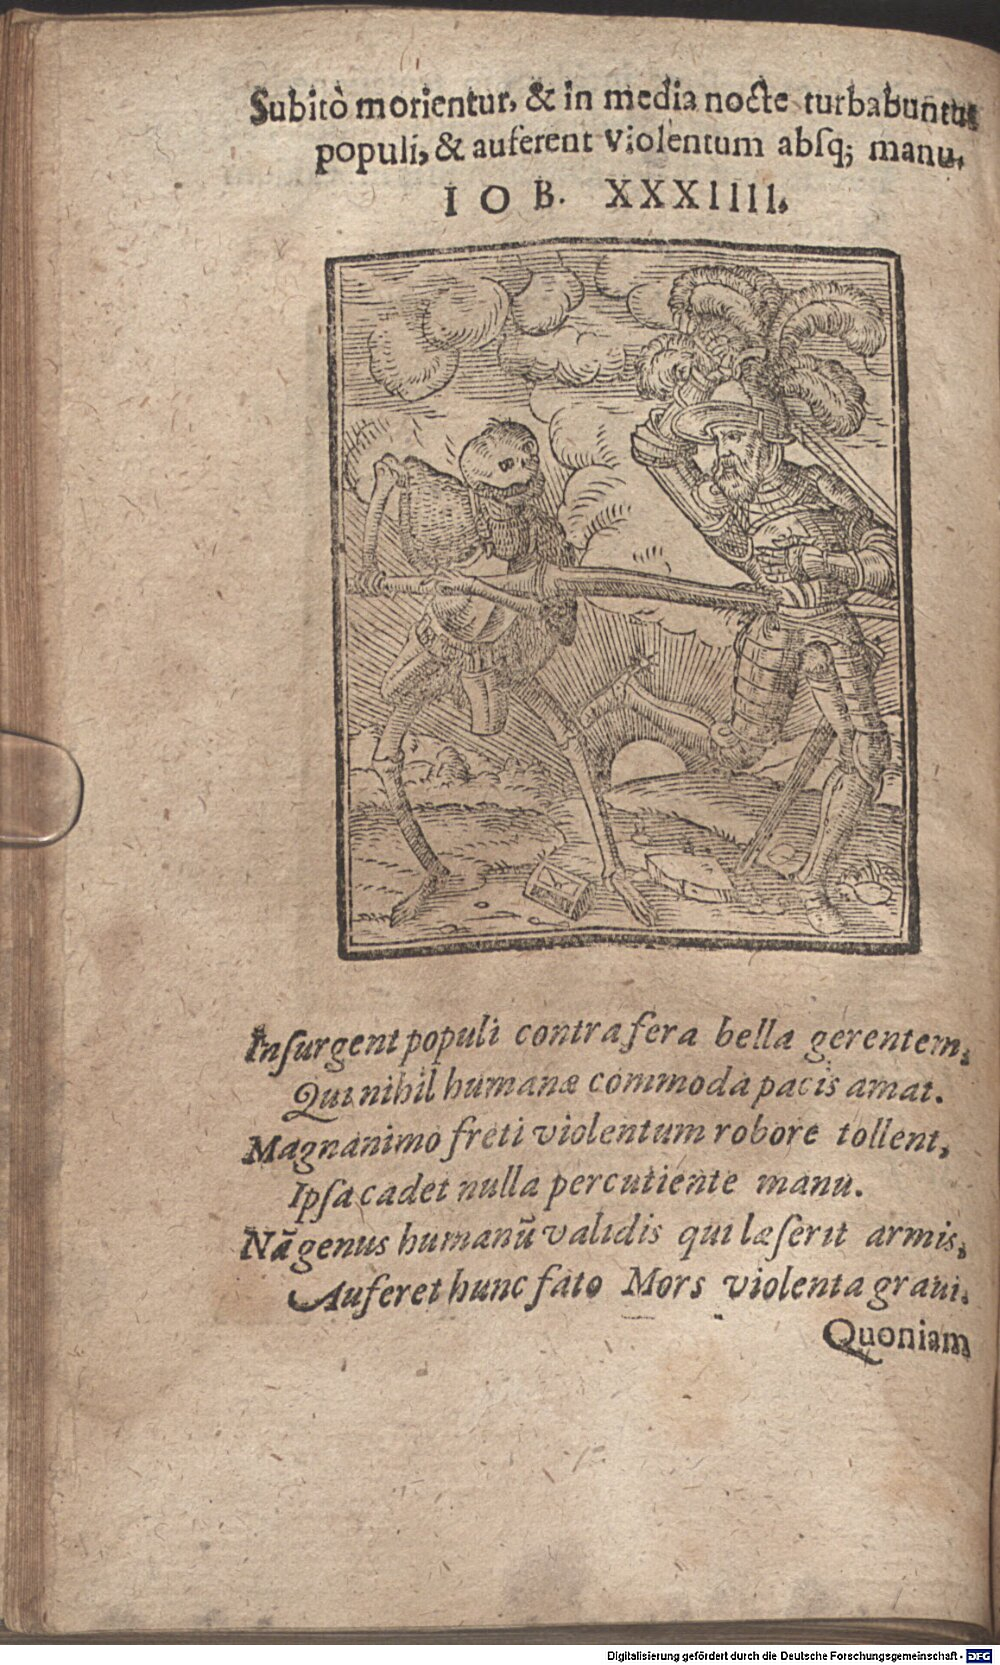 Subitò morientur, & in media nocte turbabuntur
populi, & auferent violentum absq; manu.
IOB. XXXIIII.
Inſurgent populi contra fera bella gerentem,
Qui nihil humanæ commoda pacis amat.
Magnanimo freti violentum robore tollent,
Ipſa cadet nulla percutiente manu.
Nã genus humanũ validis qui læſerit armis,
Auferet hunc fato Mors violenta graui.
Quoniam
Digitalisierung gefördert durch die Deutsche Forschungsgemeinschaft - DFG